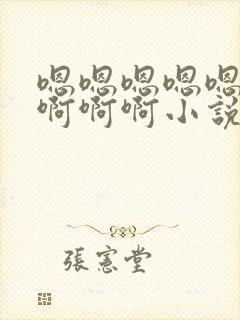 嗯嗯嗯嗯嗯
啊啊啊小說
張憲堂